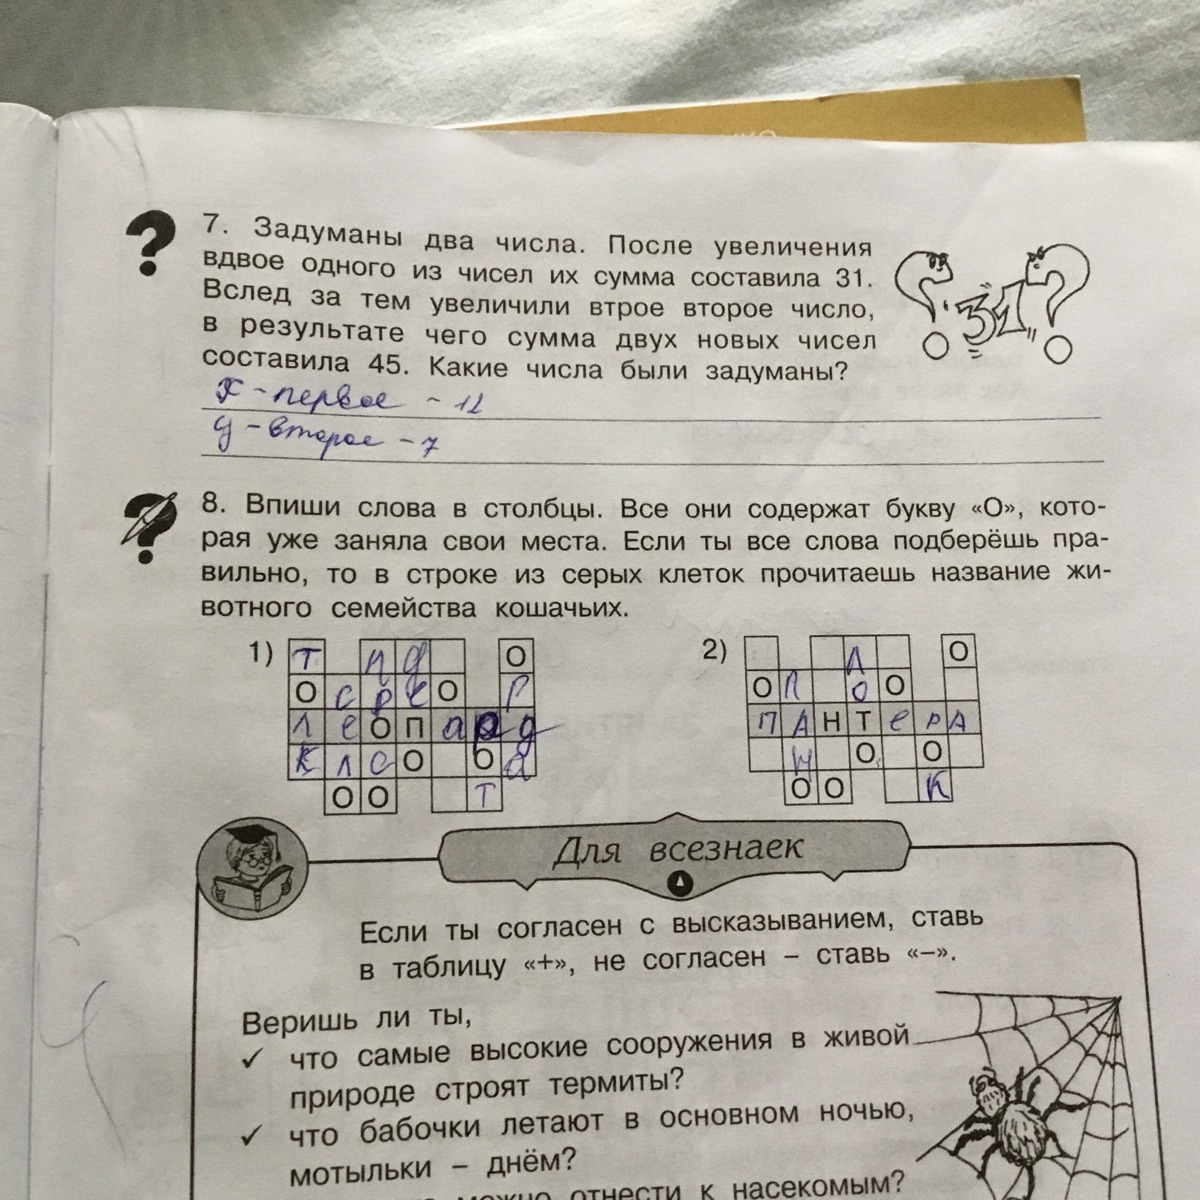 7. Задуманы два числа. После увеличения
вдвое одного из чисел их сумма составила 31.
Вслед за тем увеличили втрое второе число,
в результате чего сумма двух новых чисел
составила 45. Какие числа были задуманы?
31
х - первое - 12
у - второе - 7
8. Впиши слова в столбцы. Все они содержат букву «О», кото-
рая уже заняла свои места. Если ты все слова подберёшь пра-
вильно, то в строке из серых клеток прочитаешь название жи-
вотного семейства кошачьих.
1)
Т п д О
О с р е О Г
л е О П а р д
к л с О О а
О О Т
2)
Л О
О П О О
П А Н Т е р А
Н О О
О О К
Для всезнаек
Если ты согласен с высказыванием, ставь
в таблицу «+», не согласен – ставь «–».
Веришь ли ты,
✓ что самые высокие сооружения в живой
природе строят термиты?
✓ что бабочки летают в основном ночью,
мотыльки – днём?
можно отнести к насекомым?